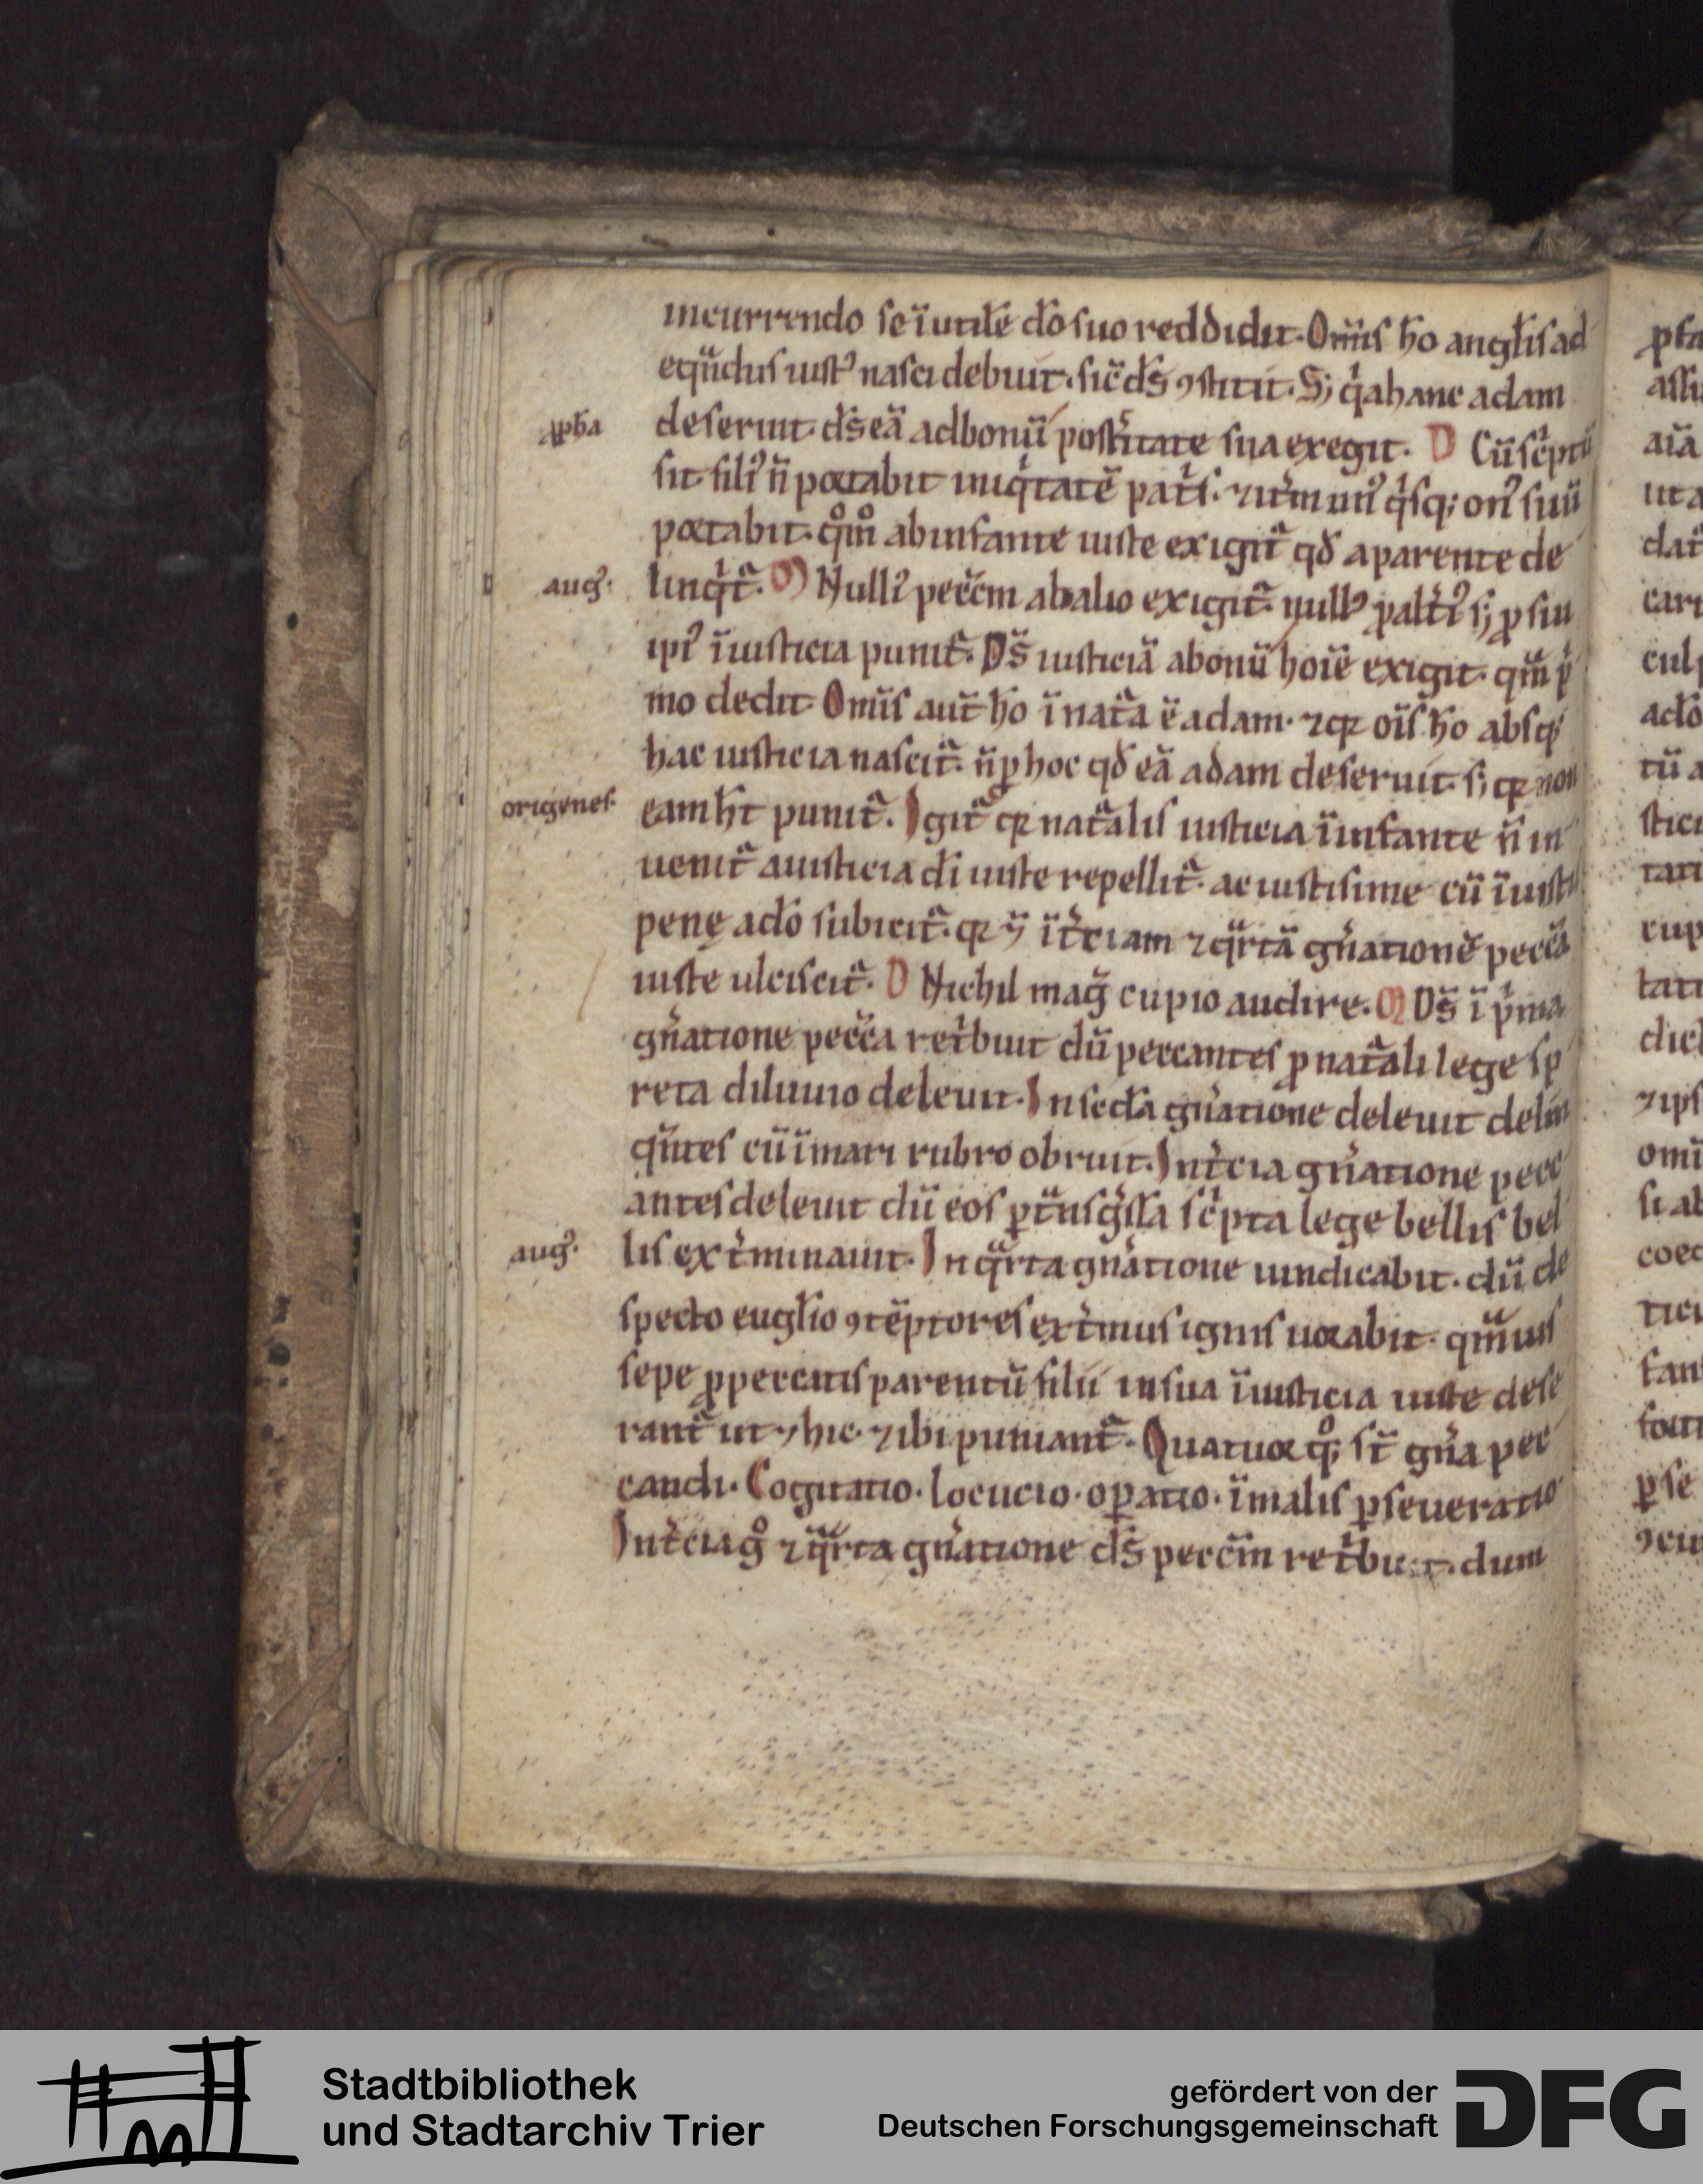 incurrendo se ı̄utilē do̅ suo reddidit. Om̅is ho̅ angl̅is ad
eq̅ndus iustꝰ nasci debuit. sic̅ ds̅ ꝯstituit. S; q̍a hanc adam
ap̅ha
deseruit. ds̅ eā ad bonū post̍itate sua exegit. D Cū sc̍ptū
sit. filiꝰ n̅ portabit iniq̍tatē pat̍s. ⁊ it̍m unꝰ q̍sq; onꝰ suū
portabit. qͦmͦ ab infante iuste exigit᷑ qd̅ a parente de
augꝰ.
linq̍t᷑. M Nulliꝰ pecc̅m ab alio exigit᷑. nullꝰ ꝓ alt̍iꝰ s; ꝓ sui
ipiꝰ ı̄iusticia punit᷑. Ds̅ iusticiā a bonū hoı̄e exigit. qm̅ p̍
mo dedit. Om̅is aut̅ ho̅ ı̄ nat᷑a ē adam. ⁊ qꝛ oı̄s ho̅ absq;
hac iusticia nascit᷑. n̅ ꝑ hoc qd̅ eā adam deseruit. s; qꝛ non
origenes.
eam h̅t punit᷑. Igit᷑ qꝛ nat᷑alis iusticia ı̄ infante n̅ in
uenit᷑ a iusticia di̅ iuste repellit᷑. ac iustisime cū ı̄iustis
penę a do̅ subicit᷑. qꝛ ı̄ t̍ciam ⁊ q᷑rtā gn̅ationē pecc̅a
iuste ulciscit᷑. D Nichil mag̅ cupio audire. M Ds̅ ı̄ p̍ma
gn̅atione pecc̅a ret̍buit dū peccantes ꝓ nat᷑ali lege sp
reta diluuio deleuit. In secd̅a gn̅atione deleuit delin
q̅ntes cū ı̄ mari rubro obruit. In t̍cia gn̅atione pecc
antes deleuit dū eos ꝑ t᷑nsg̍ssa sc̍pta lege bellis bel
augꝰ.
lis ext̍minauit. In q᷑rta gn̅atione uindicabit. dū de
specto eugl̅io ꝯtēptores ext̍mus ignis uorabit. qm̅uis
sepe ꝓ peccatis parentū filii in sua ı̄iusticia iuste dese
rant᷑ ut ⁊ hic ⁊ ibi puniant᷑. Quatuor qͦ; st̅ gn̅a pec
candi. Cogitatio. locucio. oꝑatio. ı̄ malis ꝑseueratio
In t̍cia gͦ ⁊ q᷑rta gn̅atione ds̅ pecc̅m ret̍buit. dum
Stadtbibliothek
und Stadtarchiv Trier
gefördert von der
Deutschen Forschungsgemeinschaft
DFG